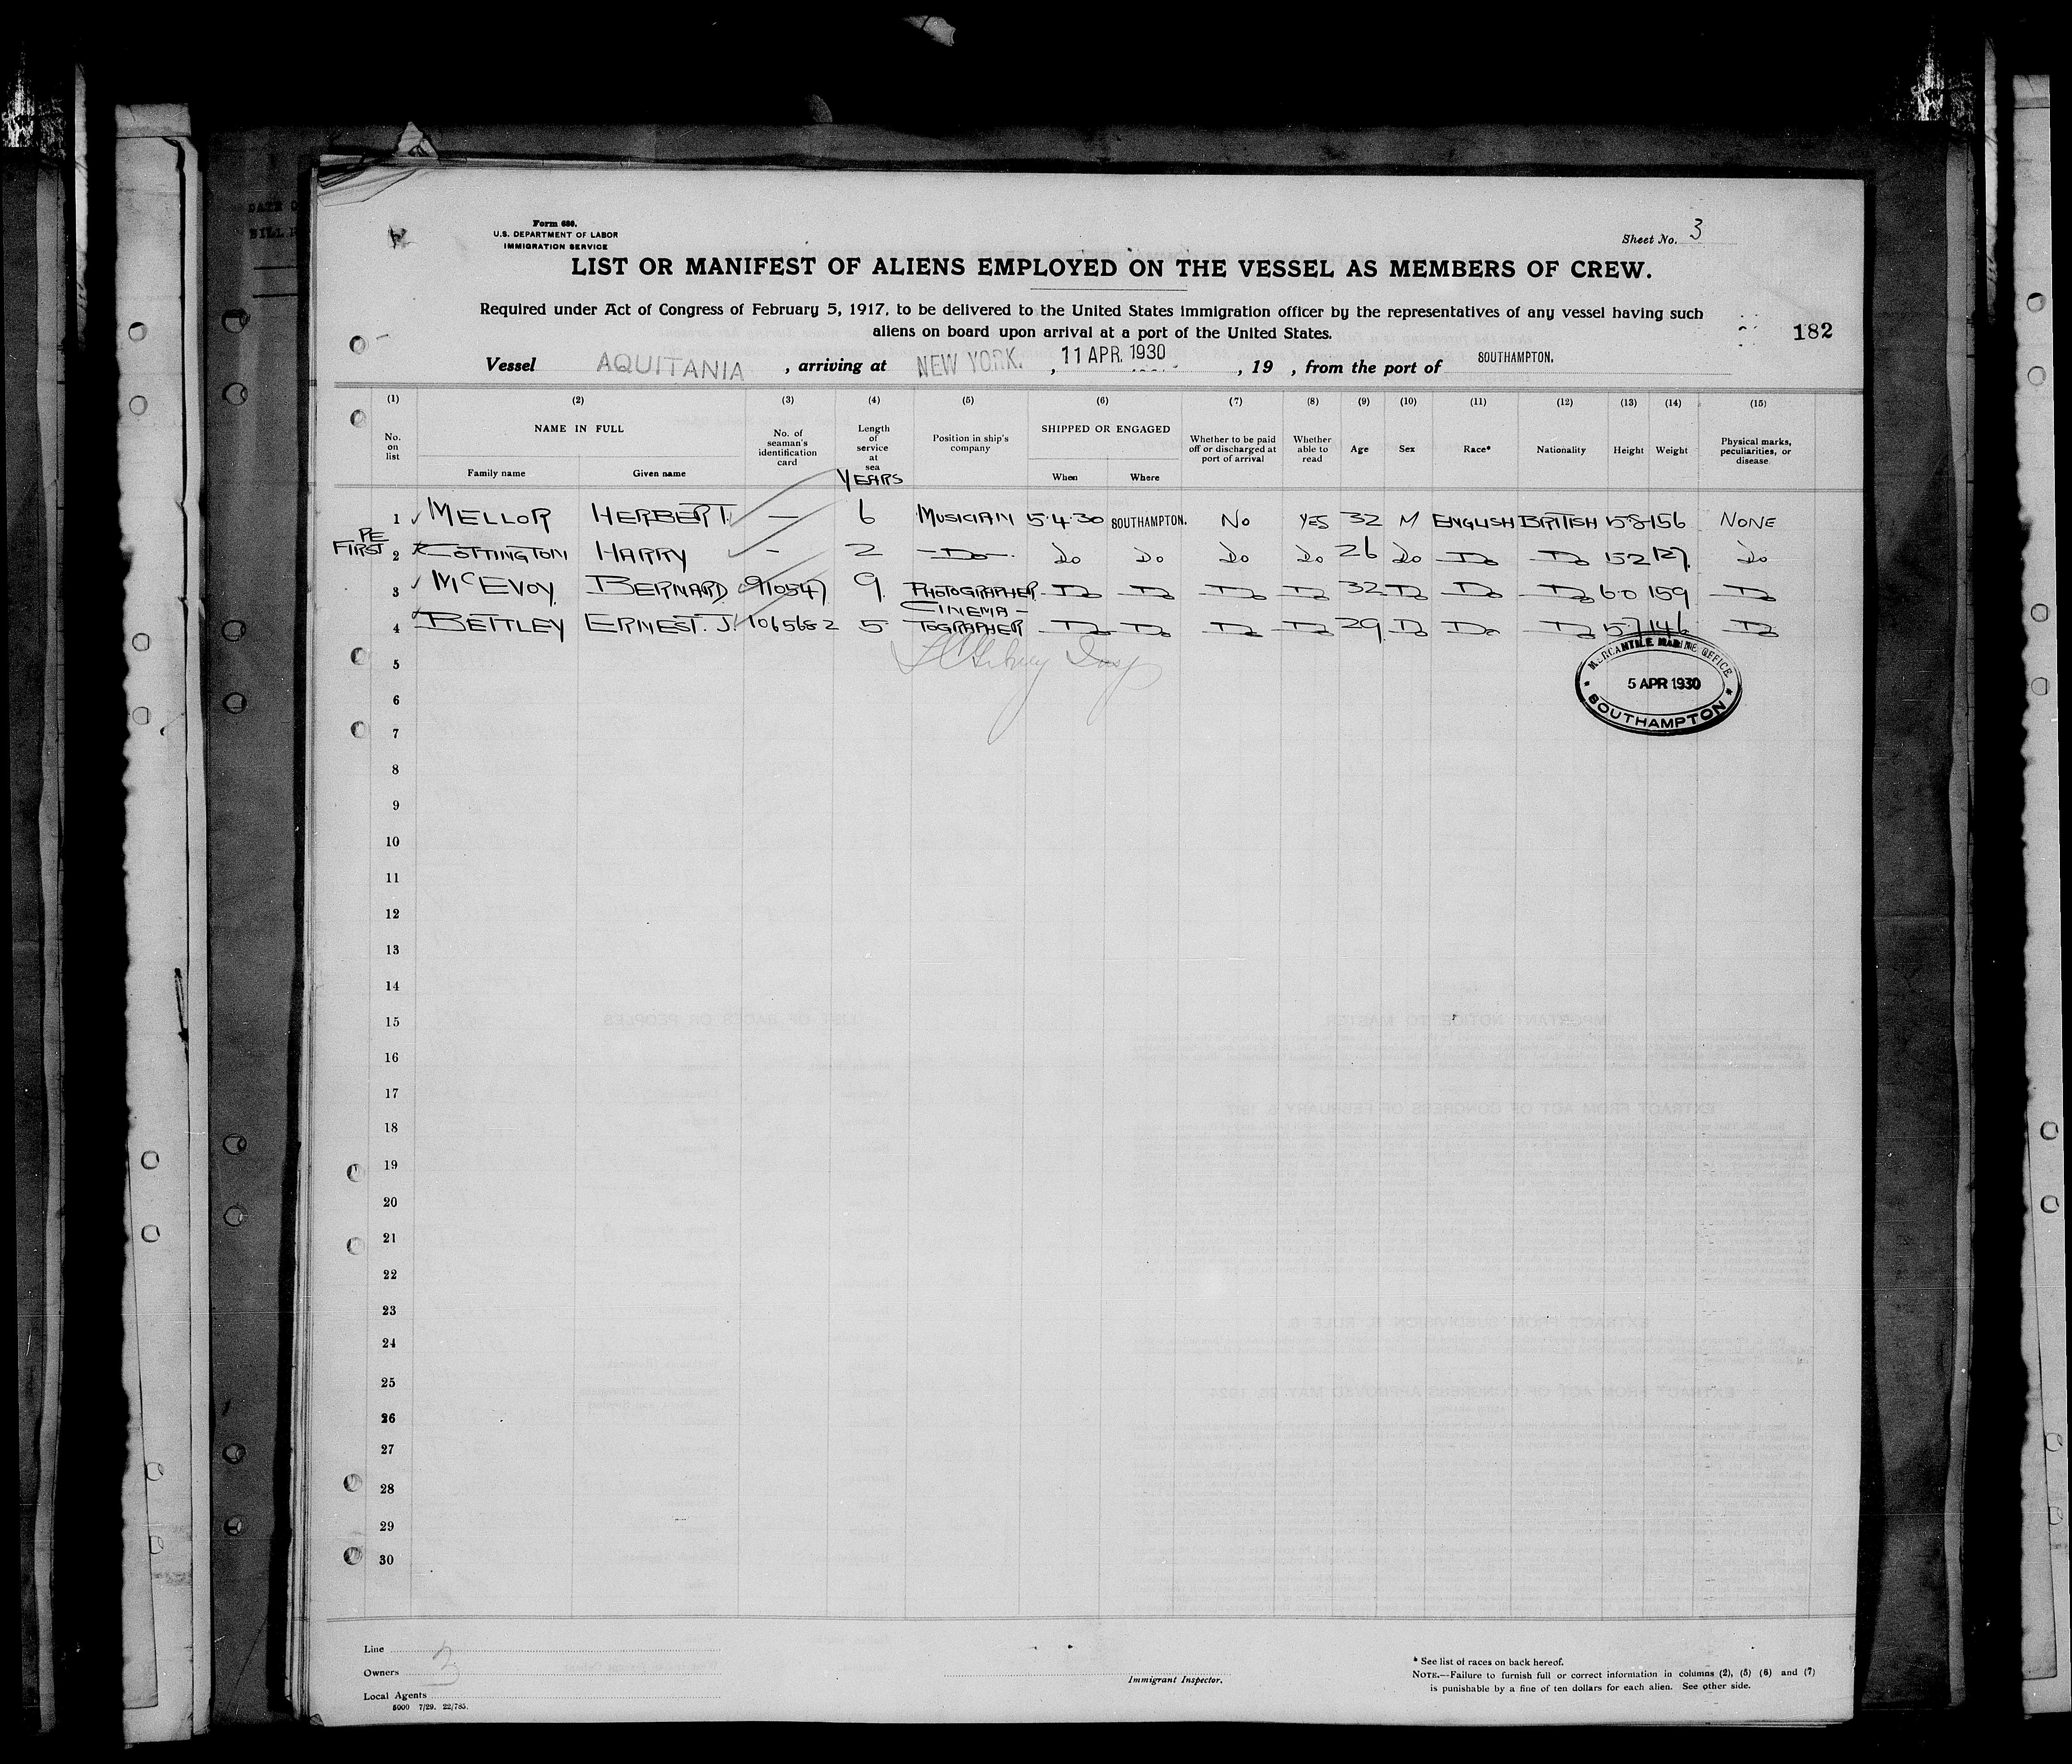 Form 680.
U.S. DEPARTMENT OF LABOR
IMMIGRATION SERVICE
Sheet No. 3
LIST OR MANIFEST OF ALIENS EMPLOYED ON THE VESSEL AS MEMBERS OF CREW.
Required under Act of Congress of February 5, 1917, to be delivered to the United States immigration officer by the representatives of any vessel having such
aliens on board upon arrival at a port of the United States.
182
Vessel AQUITANIA, arriving at NEW YORK, 11 APR. 1930, 19 , from the port of SOUTHAMPTON.
(1) (2) (3) (4) (5) (6) (7) (8) (9) (10) (11) (12) (13) (14) (15)
No. on list
NAME IN FULL
Family name Given name
No. of seaman's identification card
Length of service at sea
YEARS
Position in ship's company
SHIPPED OR ENGAGED
When Where
Whether to be paid off or discharged at port of arrival
Whether able to read
Age Sex Race* Nationality Height Weight
Physical marks, peculiarities, or disease
1 MELLOR HERBERT. — 6 MUSICIAN 5.4.30 SOUTHAMPTON. NO YES 32 M ENGLISH BRITISH 5.8 156 NONE
PE
FIRST 2 COTTINGTON HARRY - 2 —Do— Do Do Do Do 26 Do Do Do 5.2 127. Do
3 McEVOY BERNARD 910547 9. PHOTOGRAPHER Do Do Do Do 32 Do Do Do 6.0 159 Do
4 BETTLEY ERNEST. J. 1065682 5 CINEMA-
TOGRAPHER Do Do Do Do 29. Do Do Do 5.7 146 Do
MERCANTILE MARINE OFFICE
5 APR 1930
SOUTHAMPTON
5
6
7
8
9
10
11
12
13
14
15
16
17
18
19
20
21
22
23
24
25
26
27
28
29
30
Line
Owners 3
Local Agents
5000 7/29. 22/785.
Immigrant Inspector.
* See list of races on back hereof.
NOTE.—Failure to furnish full or correct information in columns (2), (5) (6) and (7)
is punishable by a fine of ten dollars for each alien. See other side.